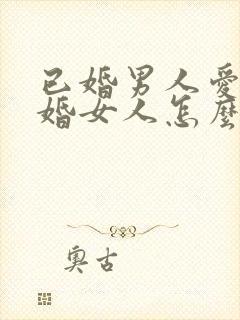 已婚男人愛
婚女人怎麼
奧古